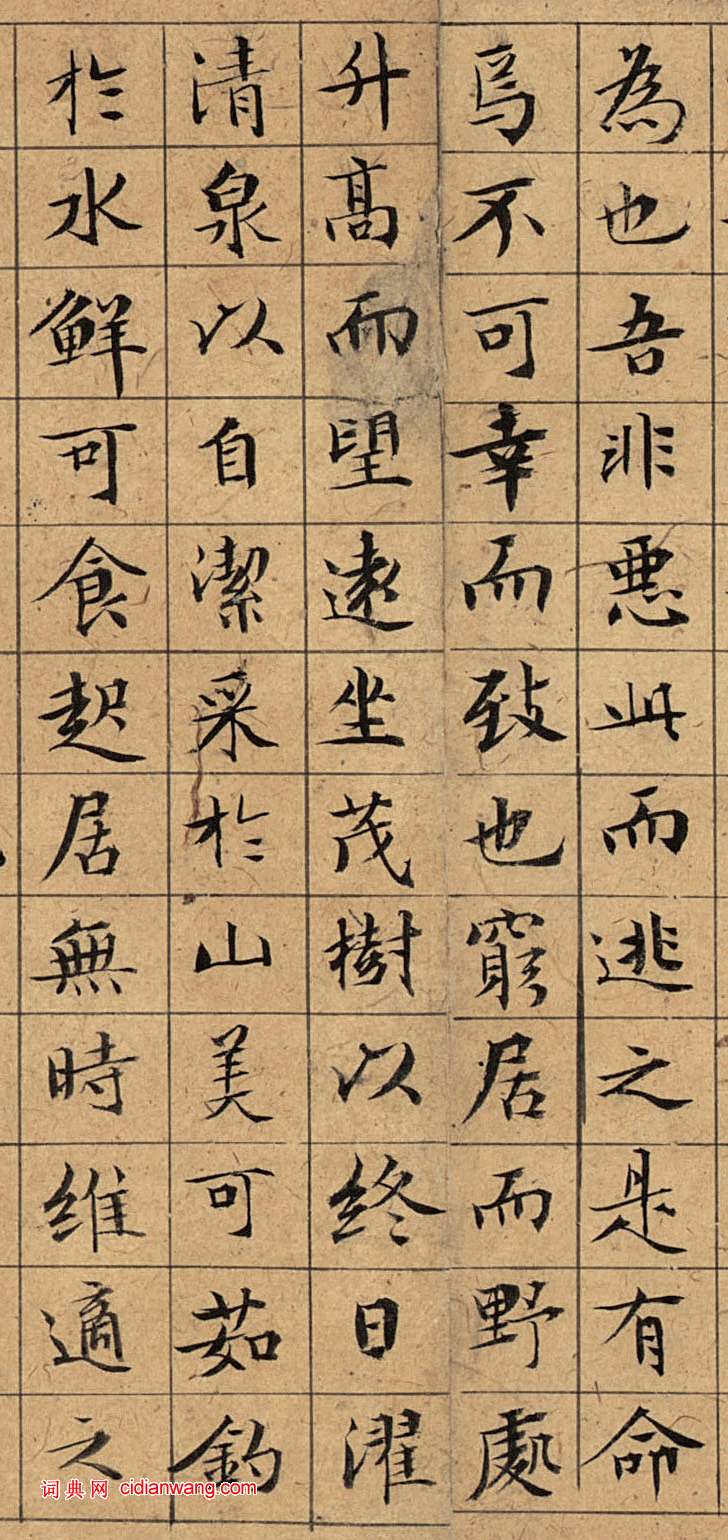 為也吾非悪此而逃之是有命
焉不可幸而致也窮居而野處
升高而望遠坐茂樹以終日濯
清泉以自潔采於山美可茹釣
於水鮮可食起居無時維適之
词典网 cidianwang.com